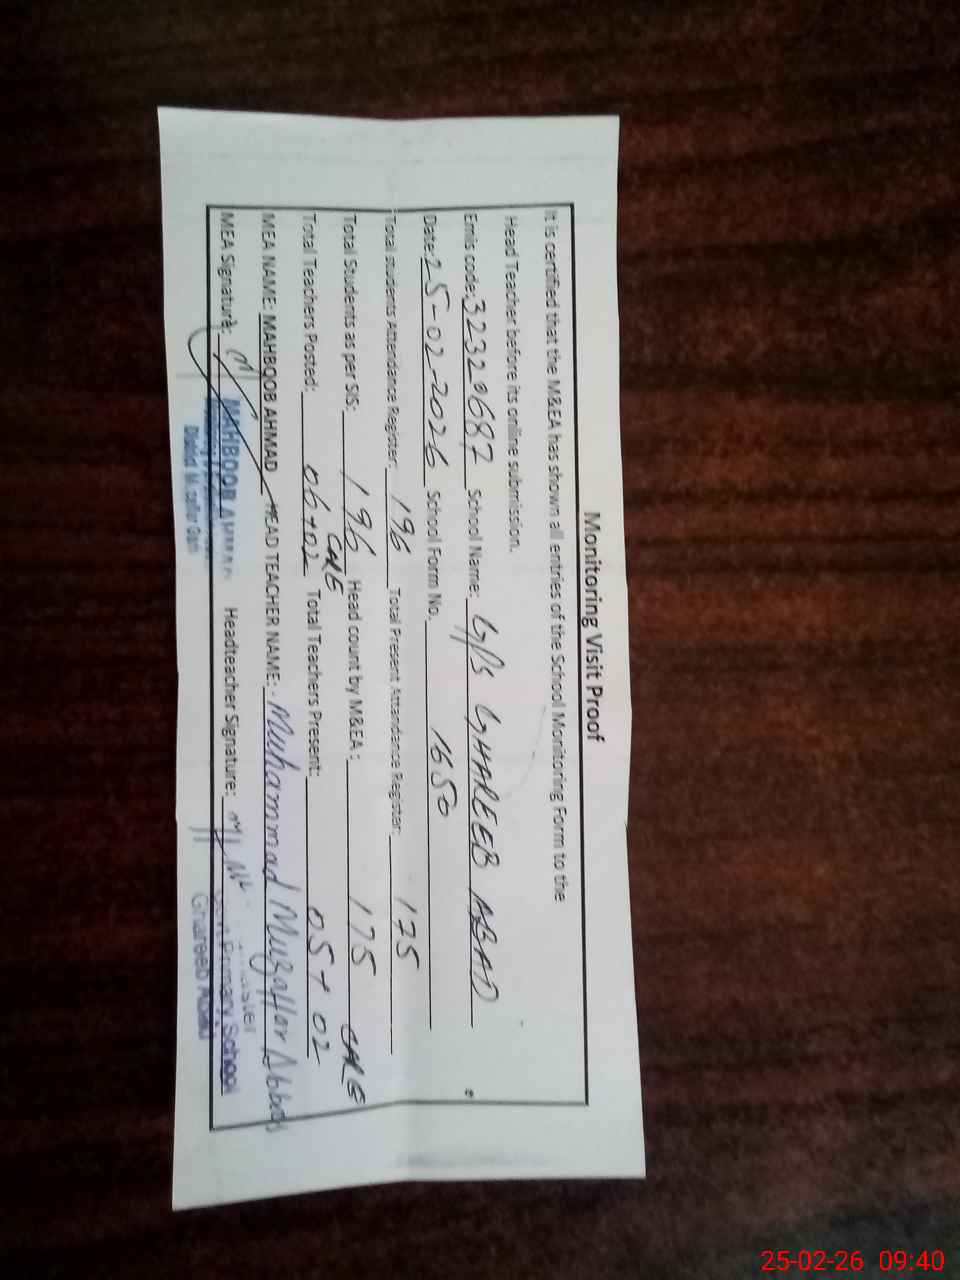 Monitoring Visit Proof
It is certified that the M&EA has shown all entries of the School Monitoring Form to the
Head Teacher before its online submission.
Emis code: 32320687 School Name: G/PS GHAREEB ABAD
Date: 25-02-2026 School Form No. 1650
Total students Attendance Register: 196 Total Present Attandance Register: 175
Total Students as per SIS: 196 Head count by M&EA: 175
Total Teachers Posted: 06+02 CARE Total Teachers Present: 05+02 CARE
MEA NAME: MAHBOOB AHMAD HEAD TEACHER NAME: Muhammad Muzaffar Abbas
MEA Signature: Headteacher Signature:
MAHBOOB AHMAD
District
Govt Primary School
Ghareeb Abad
25-02-26 09:40